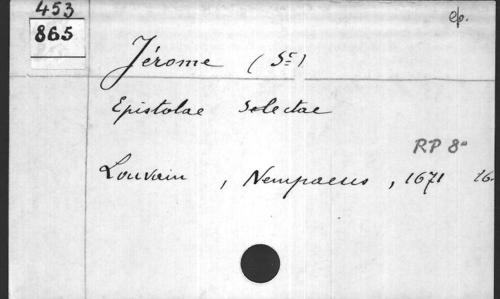 453
ep.
865
Jérome (St)
Epistolae Selectae
RP 8°
Louvain, Nempaeus, 1671 16